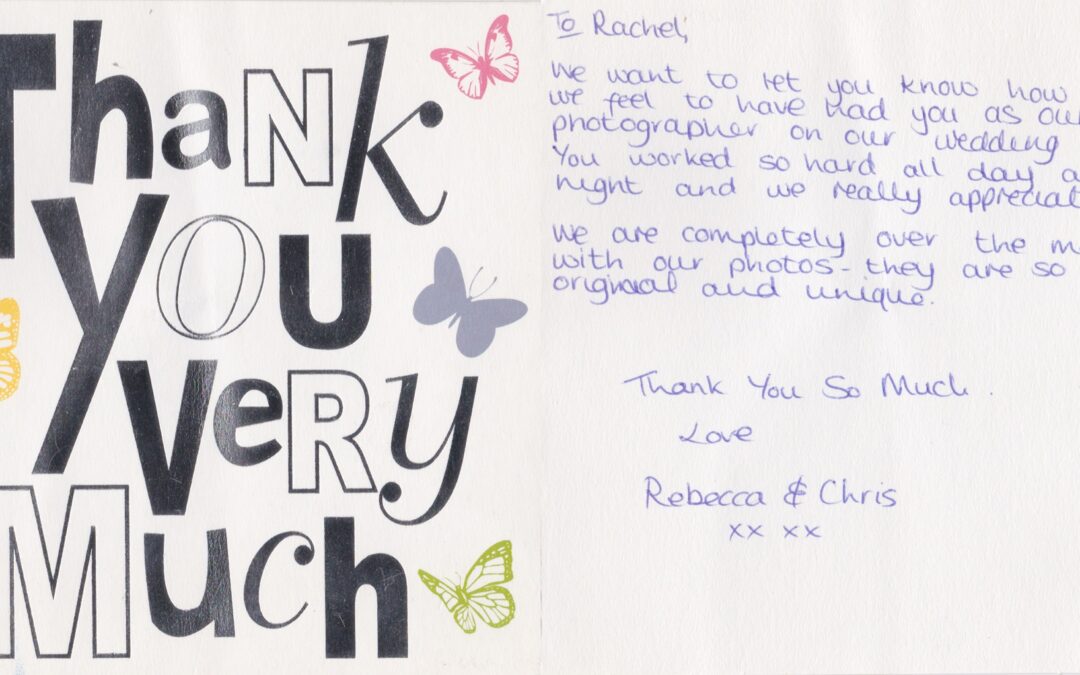 Thank
You
Very
Much
To Rachel,
We want to let you know how
we feel to have had you as our
photographer on our wedding
You worked so hard all day a
night and we really appreciat
We are completely over the m
with our photos - they are so
original and unique.
Thank You So Much.
Love
Rebecca & Chris
xx xx